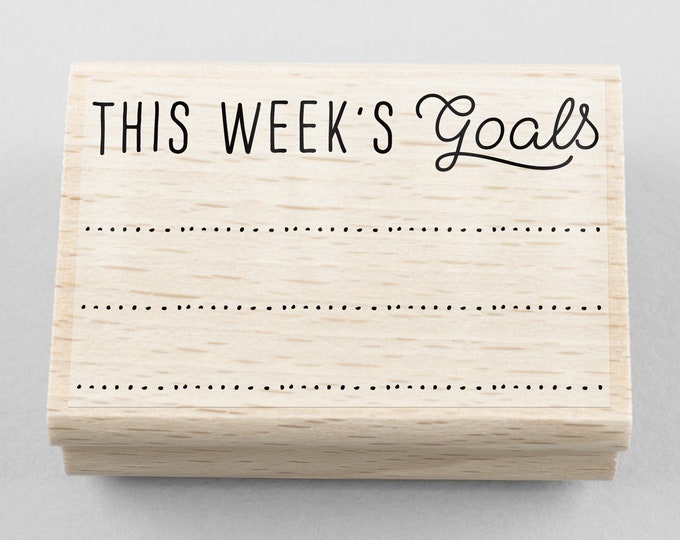 THIS WEEK'S Goals